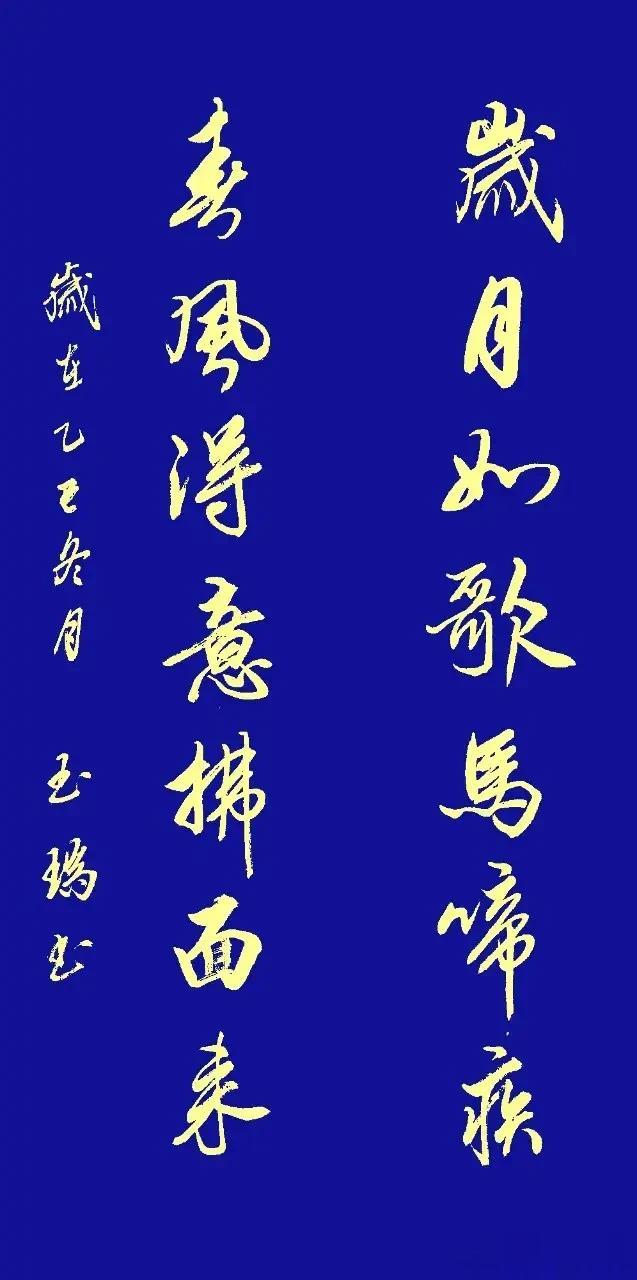 歲月如歌馬啼疾
春風得意拂面来
歲在乙巳冬月 玉瑞书